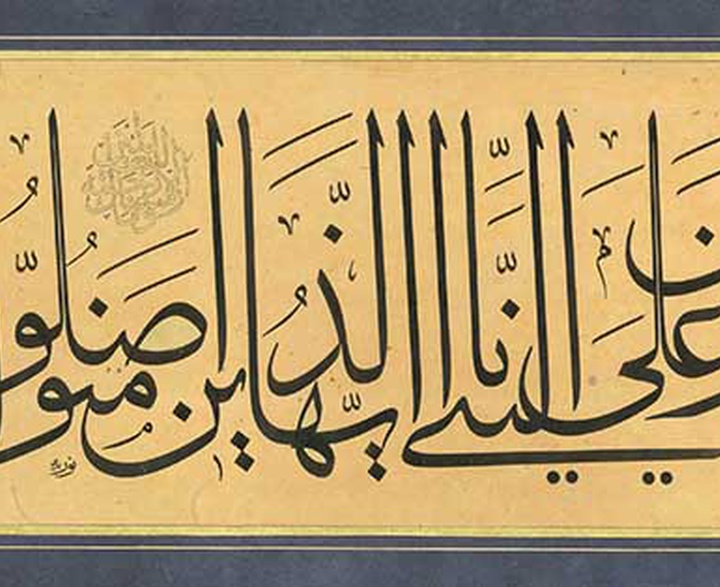 عَلَى النَّبِيِّ يَا أَيُّهَا الَّذِينَ اٰمَنُوا صَلُّوا